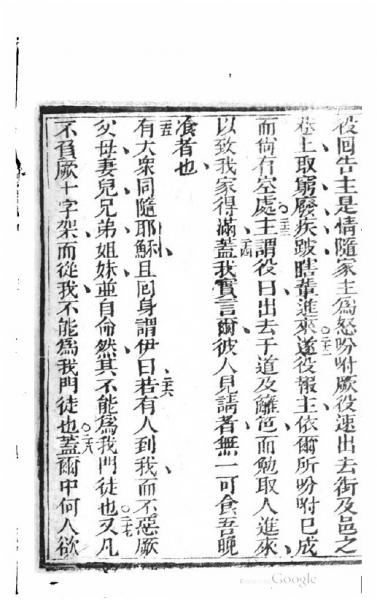 役囘告主是情隨家主為怒吩咐厥役速出去街及邑之
巷上取窮廢疾跛瞎輩進來遂役報主依爾所吩咐已成
而尚有空處主謂役曰出去于道及籬笆而勉取人進來
以致我家得滿蓋我實言爾彼人見請者無一可食吾晚
飡者也
有大衆同隨耶穌且囘身謂伊曰若有人到我而不惡厥
父母妻兒兄弟姐妹並自命然其不能為我門徒也又凡
不負厥十字架而從我不能為我門徒也蓋爾中何人欲
Google